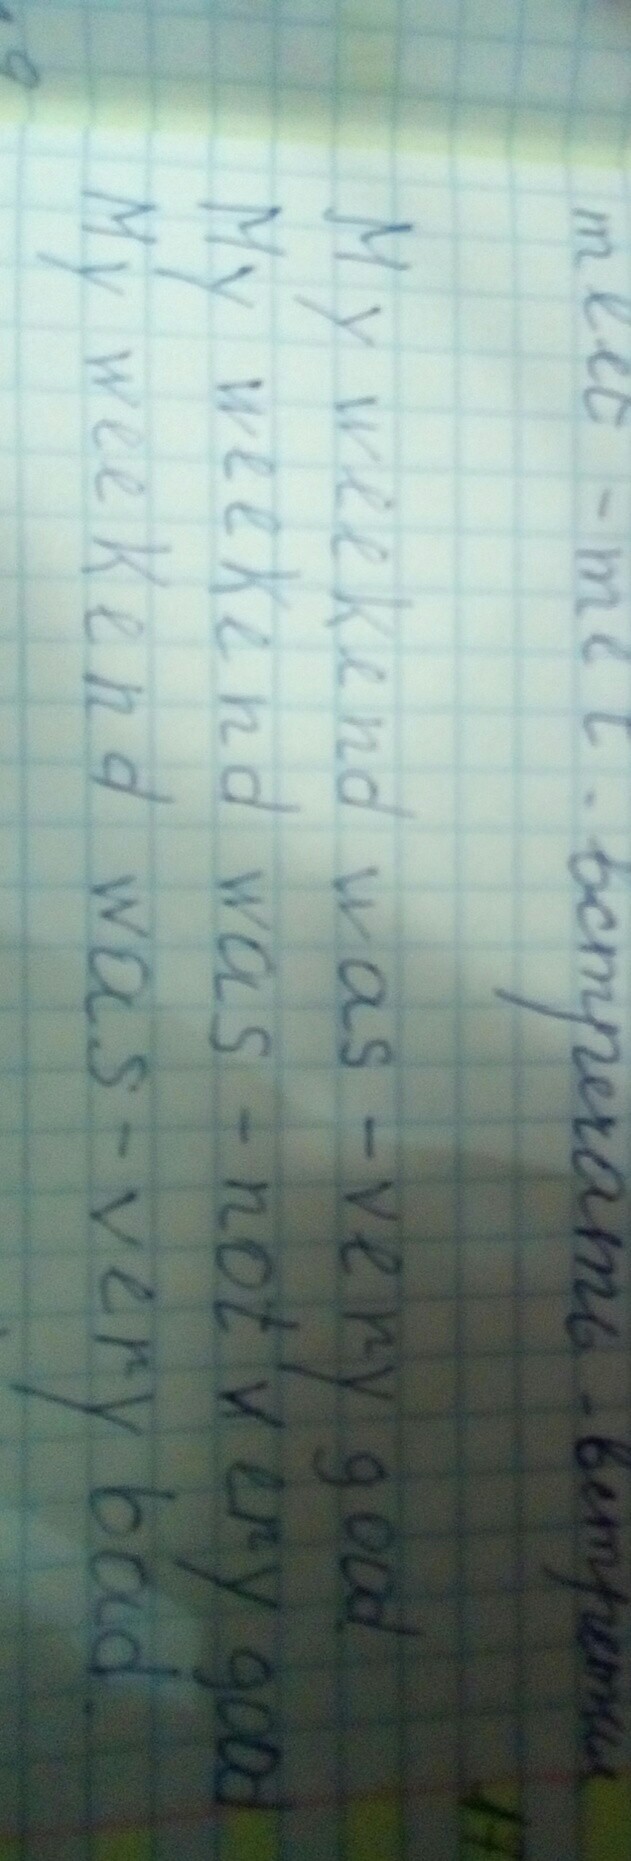 meet - met - встречать - встретил
My weekend was - very good
My weekend was - not very good
My weekend was - very bad.